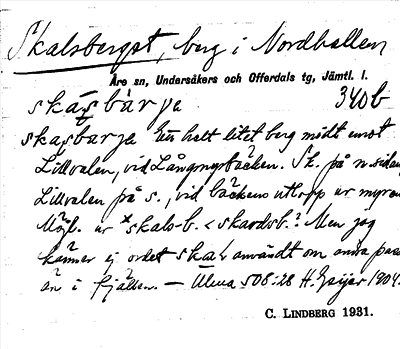 Skalsberget, berg i Nordhallen
Åre sn, Undersåkers och Offerdals tg, Jämtl. l.
skasbärje 340b
skasbarje Ett helt litet berg midt emot
Lillvalen, vid Långmyrbäcken. Sk. på n. sidan
Lillvalen på s., vid bäckens utlopp ur myren
Möjl. ur *skals-b. < skardsb.? Men jag
känner ej ordet användt om andra pass
än i fjällen. — Ulma 508:28 H. Geijer 1904.
C. LINDBERG 1931.